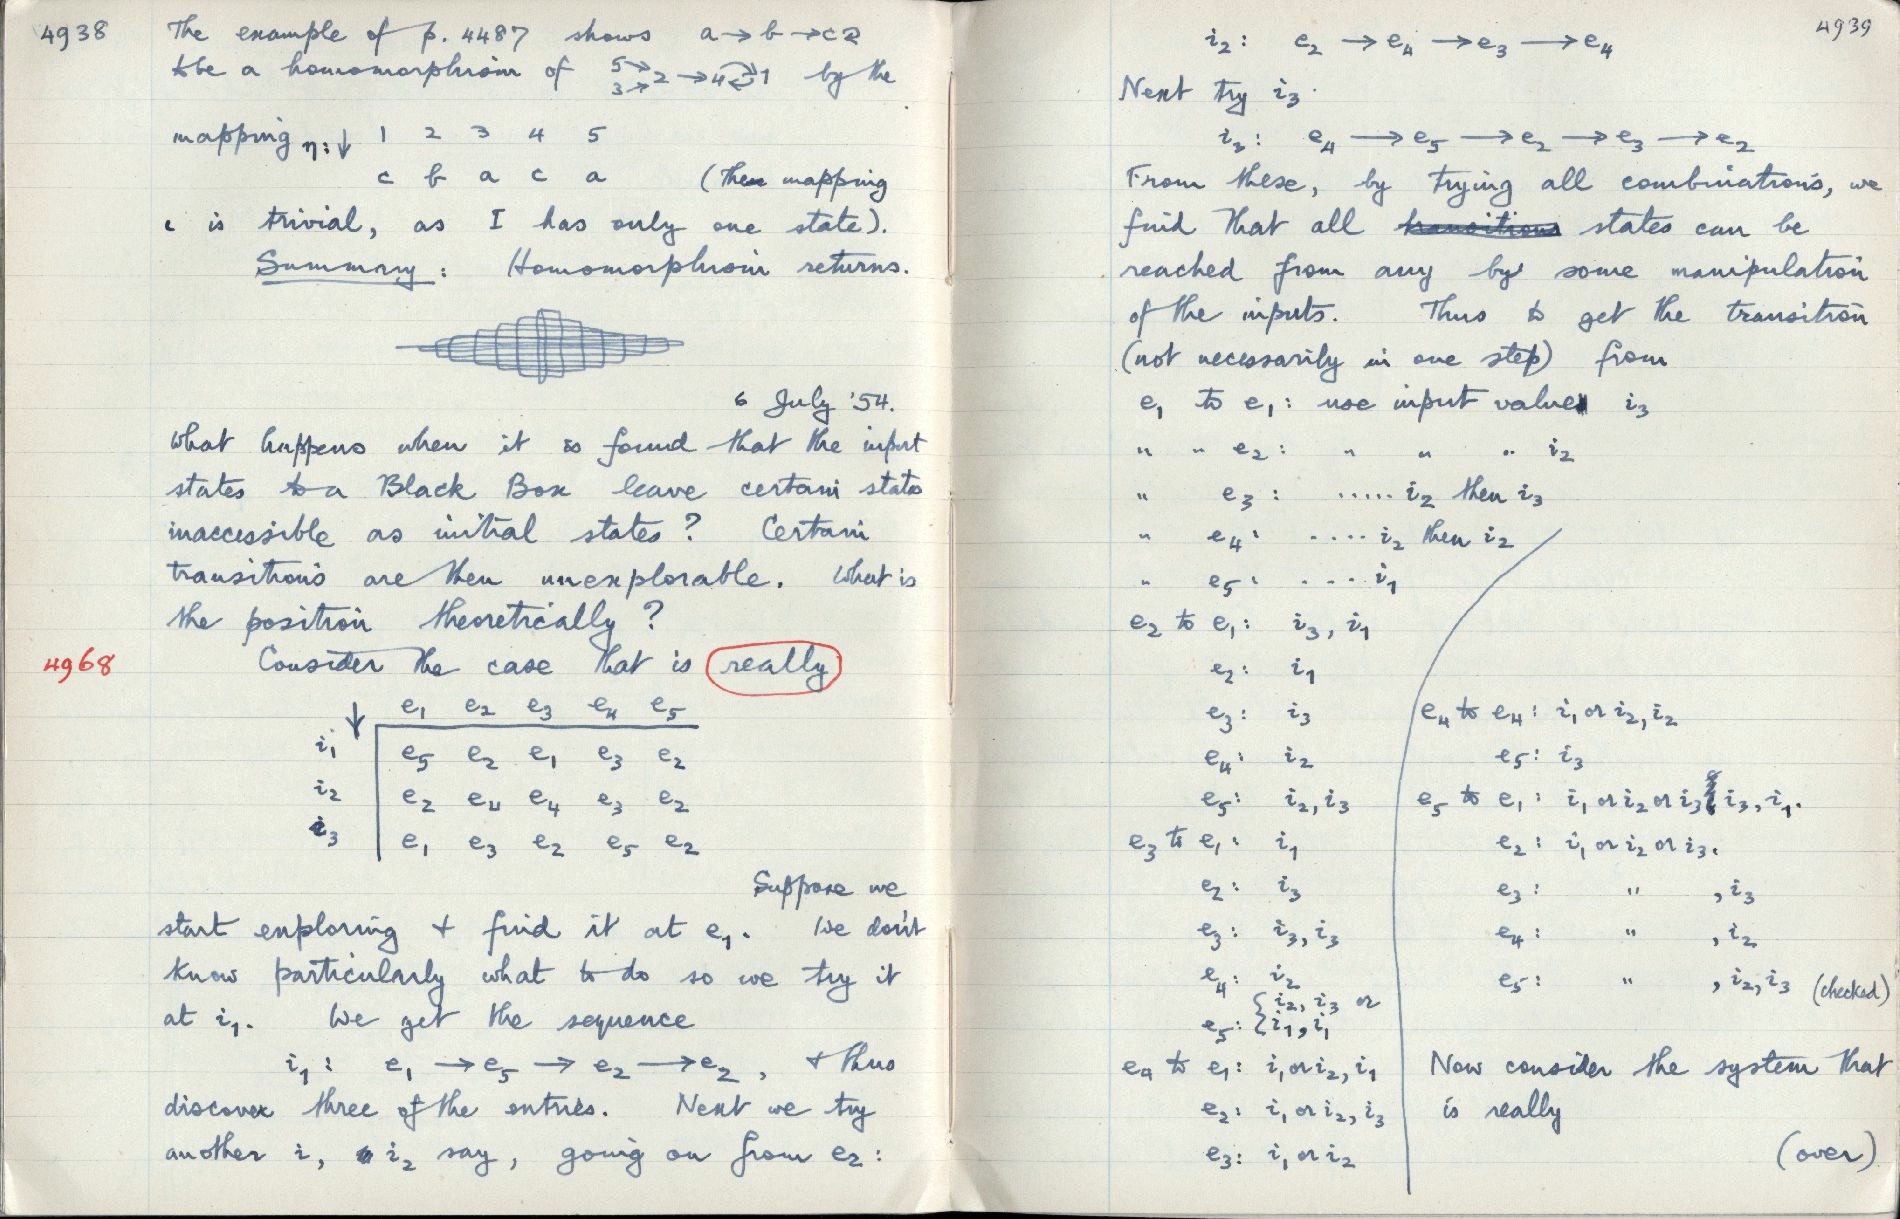 4938
The example of p. 4487 shows a → b → c⤸
to be a homomorphism of 5→ 3→ 2 → 4 ⇄ 1 by the
mapping η: ↓ 1 2 3 4 5
c b a c a (the mapping
ι is trivial, as I has only one state).
Summary: Homomorphism returns.
6 July '54.
What happens when it is found that the input
states to a Black Box leave certain states
inaccessible as initial states? Certain
transitions are then unexplorable. What is
the position theoretically?
4968 Consider the case that is really
↓ e1 e2 e3 e4 e5
i1 e5 e2 e1 e3 e2
i2 e2 e4 e4 e3 e2
i3 e1 e3 e2 e5 e2
Suppose we
start exploring + find it at e1. We don't
know particularly what to do so we try it
at i1. We get the sequence
i1: e1 → e5 → e2 → e2, + thus
discover three of the entries. Next we try
another i, i2 say, going on from e2:
4939
i2: e2 → e4 → e3 → e4
Next try i3.
i3: e4 → e5 → e2 → e3 → e2
From these, by trying all combinations, we
find that all transitions states can be
reached from any by some manipulation
of the inputs. Thus to get the transition
(not necessarily in one step) from
e1 to e1: use input value i3
" " e2: " " " i2
" e3: ..... i2 then i3
" e4: .... i2 then i2
" e5: .... i1
e2 to e1: i3, i1
e2: i1
e3: i3
e4: i2
e5: i2, i3
e3 to e1: i1
e2: i3
e3: i3, i3
e4: i2
e5: { i2, i3 or
i1, i1
e4 to e1: i1 or i2, i1
e2: i1 or i2, i3
e3: i1 or i2
e4 to e4: i1 or i2, i2
e5: i3
e5 to e1: i1 or i2 or i3, i3, i1.
e2: i1 or i2 or i3.
e3: " , i3
e4: " , i2
e5: " , i2, i3 (checked)
Now consider the system that
is really
(over)